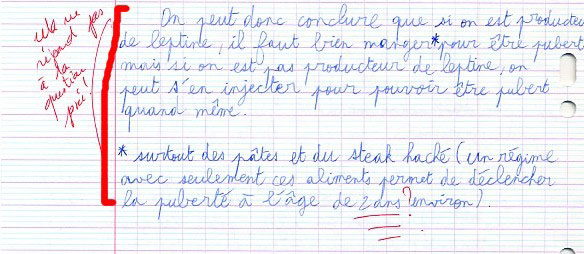 On peut donc conclure que si on est producteu
de leptine, il faut bien manger*pour être pubert
mais si on est pas producteur de leptine, on
peut s'en injecter pour pouvoir être pubert
quand même.
* surtout des pâtes et du steak haché (un régime
avec seulement ces aliments permet de déclencher
la puberté à l'âge de 2 ans ? environ).
cela ne
répond pas
à la
question